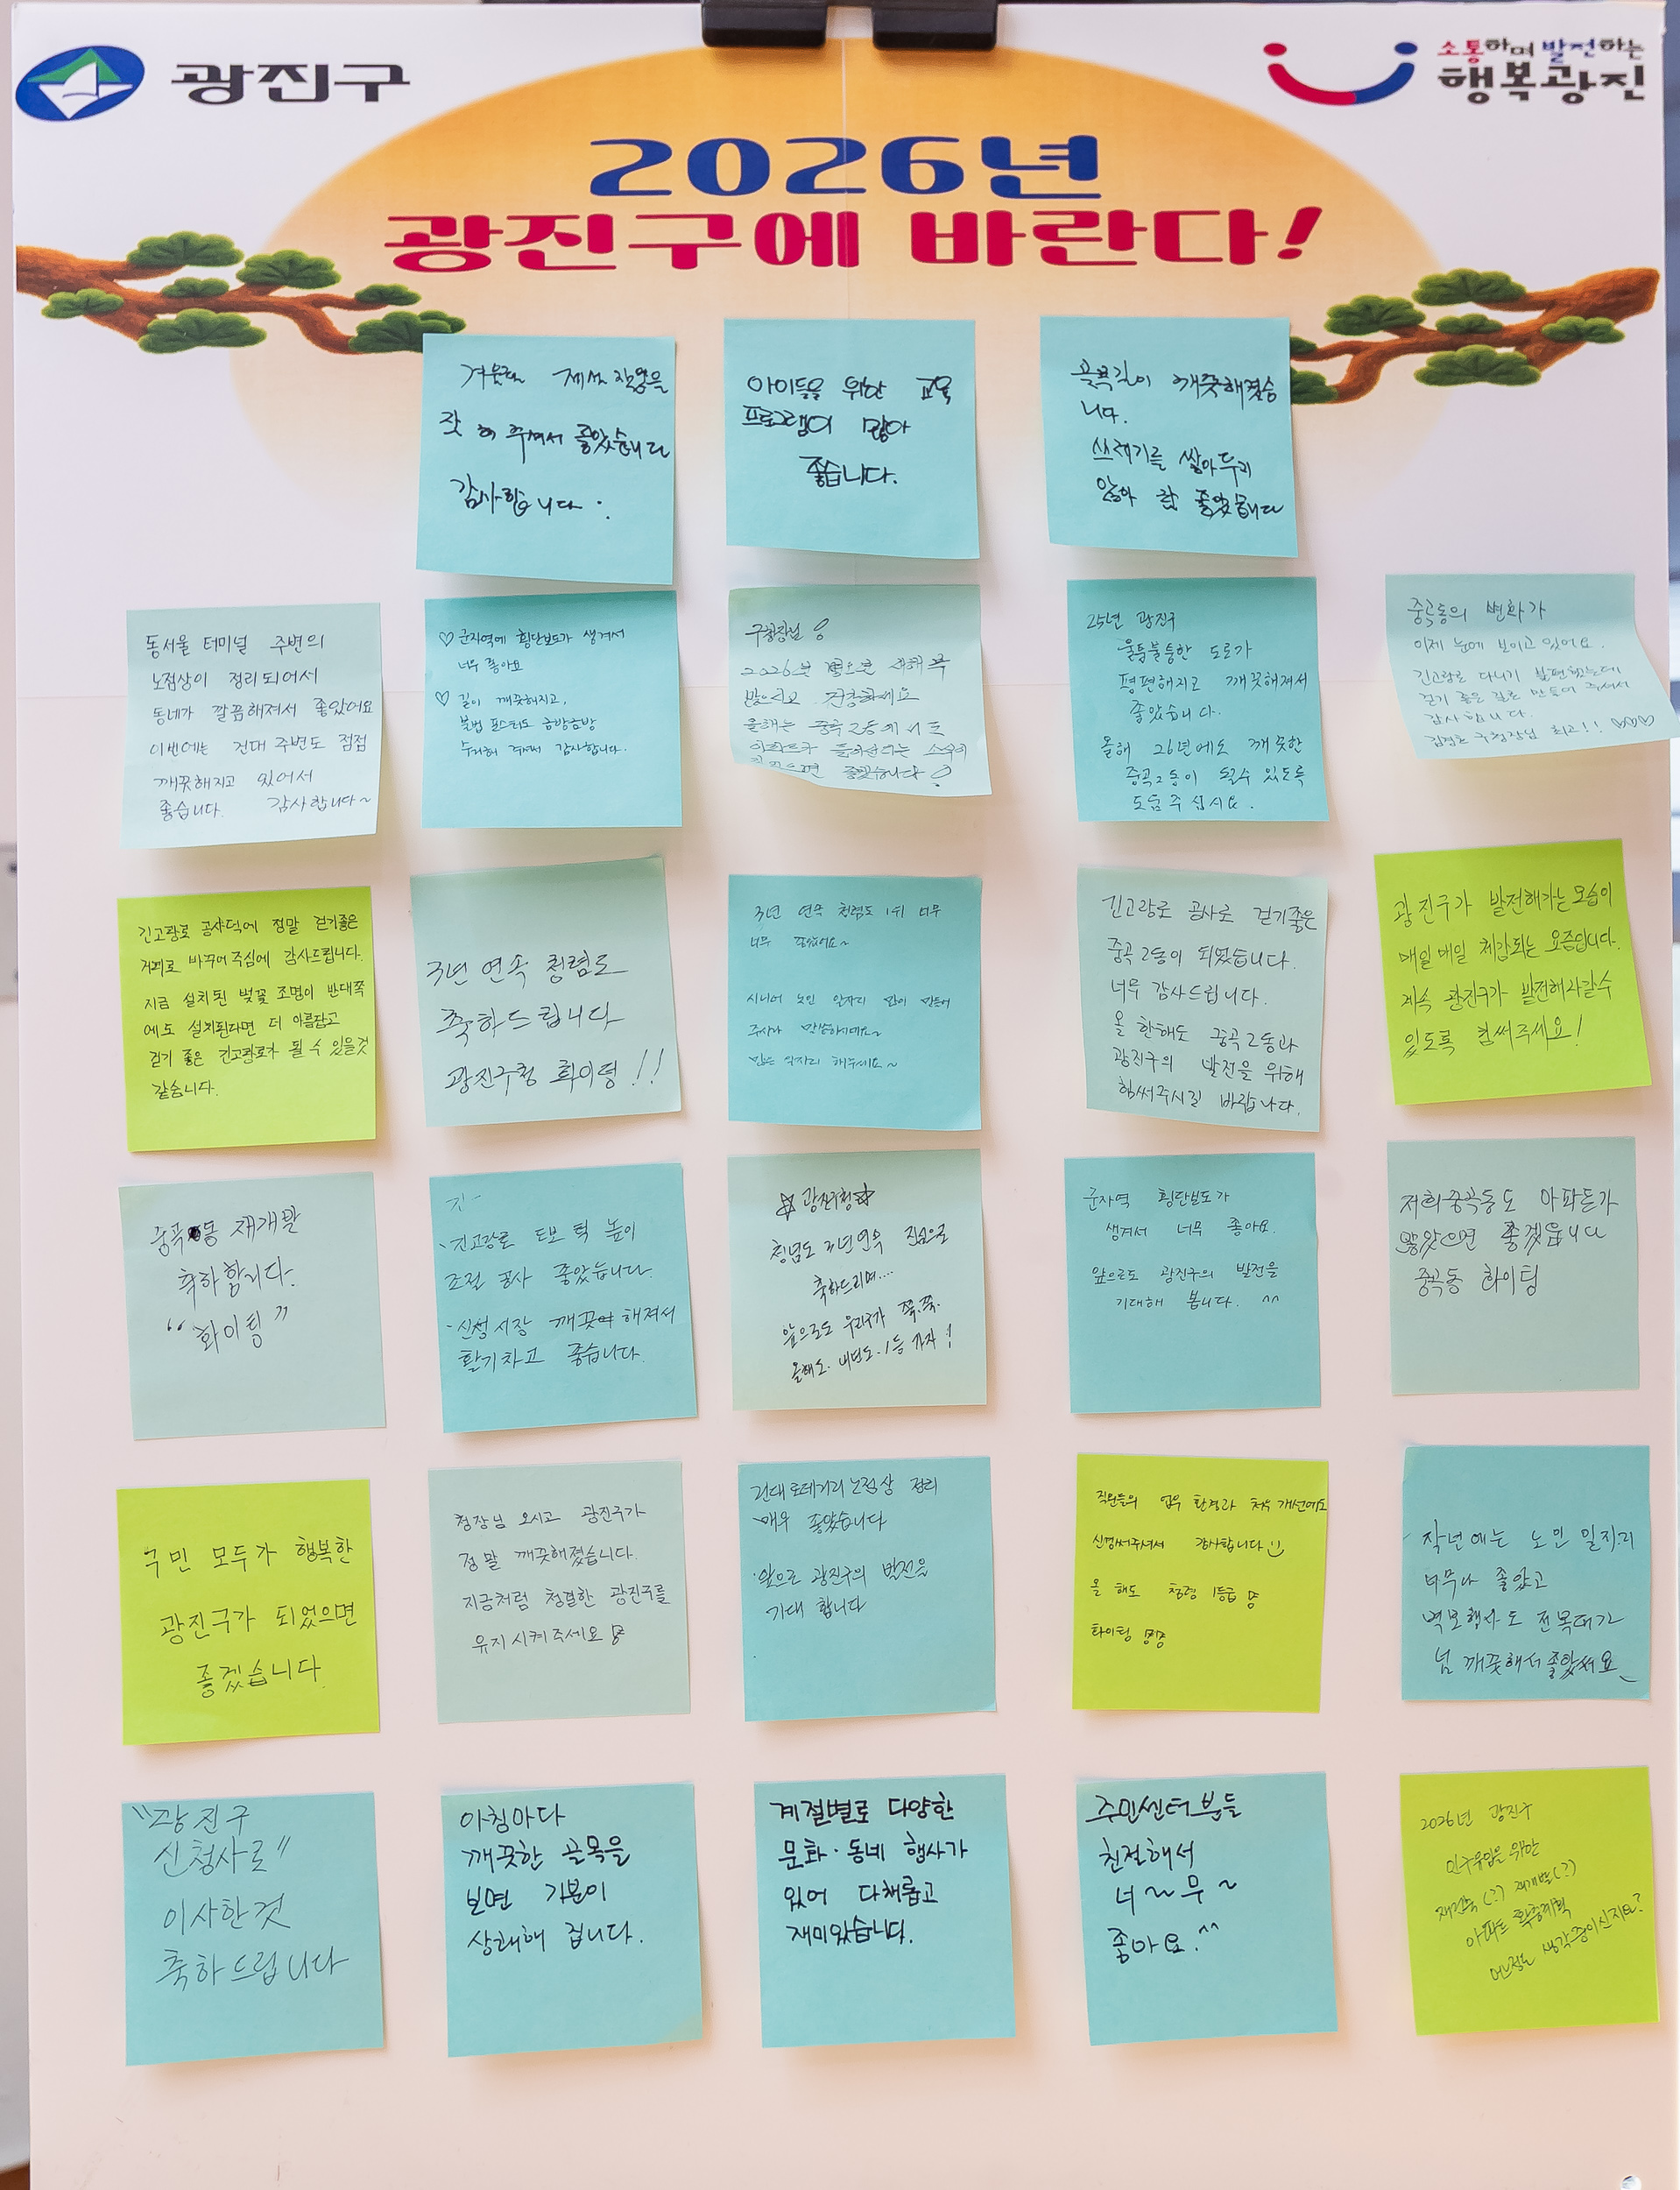 광진구
소통하며 발전하는
행복광진
2026년
광진구에 바란다!
겨울철 제설작업을
잘 해 주셔서 좋았습니다
감사합니다.
아이들을 위한 교육
프로그램이 많아
좋습니다.
골목길이 깨끗해졌습
니다.
쓰레기를 쌓아두지
않아 참 좋았습니다
동서울 터미널 주변의
노점상이 정리되어서
동네가 깔끔해져서 좋았어요
이번에는 건대 주변도 점점
깨끗해지고 있어서
좋습니다. 감사합니다~
♡ 군자역에 횡단보도가 생겨서
너무 좋아요
♡ 길이 깨끗해지고,
불법 포스터도 금방금방
수거해 가셔서 감사합니다.
구청장님!
2026년 새해 복
많으시고 건강하세요
올해는 중곡2동에서도
아파트가 들어선다는 소식이
좋겠습니다!
25년 광진구
울퉁불퉁한 도로가
평편해지고 깨끗해져서
좋았습니다.
올해 26년에도 깨끗한
중곡2동이 될수 있도록
도움 주십시요.
중곡동의 변화가
이제 눈에 보이고 있어요.
긴고랑로 다니기 불편했는데
걷기 좋은 길로 만들어 주셔서
감사합니다.
김경호 구청장님 최고!! ♡♡♡
긴고랑로 공사덕에 정말 걷기좋은
거리로 바꾸어 주심에 감사드립니다.
지금 설치된 벚꽃 조명이 반대쪽
에도 설치된다면 더 아름답고
걷기 좋은 긴고랑로가 될 수 있을것
같습니다.
3년 연속 청렴도
축하드립니다
광진구청 화이팅!!
3년 연속 청렴도 1위 너무
너무 좋았어요~
시니어 노인 일자리 많이 만들어
주시라 말씀하시데요~
많은 일자리 해주세요~
긴고랑로 공사로 걷기좋은
중곡2동이 되었습니다.
너무 감사드립니다.
올 한해도 중곡2동과
광진구의 발전을 위해
힘써주시길 바랍니다.
광진구가 발전해가는 모습이
매일매일 체감되는 요즘입니다.
계속 광진구가 발전해나갈수
있도록 힘써주세요!
중곡동 재개발
축하합니다.
"화이팅"
긴고랑로 도보 턱 높이
조절 공사 좋았습니다.
·신성시장 깨끗해져서
활기차고 좋습니다.
☆광진구청☆
청념도 3년연속 진심으로
축하드리며....
앞으로도 우리구가 쭉.쭉.
올해도.내년도.1등 가자!
군자역 횡단보도가
생겨서 너무 좋아요.
앞으로도 광진구의 발전을
기대해 봅니다. ^^
저희중곡동도 아파트가
많았으면 좋겠읍니다
중곡동 화이팅
구민 모두가 행복한
광진구가 되었으면
좋겠습니다.
청장님 오시고 광진구가
정말 깨끗해졌습니다.
지금처럼 청결한 광진구를
유지시켜주세요
건대 로데거리 노점상 정리
매우 좋았습니다
·앞으로 광진구의 발전을
기대 합니다
직원들의 업무 환경과 처우 개선에도
신경써주셔서 감사합니다
올 해도 청렴 1등급
화이팅
작년에는 노인 일자리
너무나 좋았고
벽보행사도 전봇대가
넘 깨끗해서 좋았써요
"광진구
신청사로"
이사한것
축하드립니다
아침마다
깨끗한 골목을
보면 기분이
상쾌해 집니다.
계절별로 다양한
문화·동네 행사가
있어 다채롭고
재미있습니다.
주민센터분들
친절해서
너~무~
좋아요.^^
2026년 광진구
인구유입을 위한
재건축(?) 재개발(?)
아파트 확충계획
어느정도 생각중이신지요?